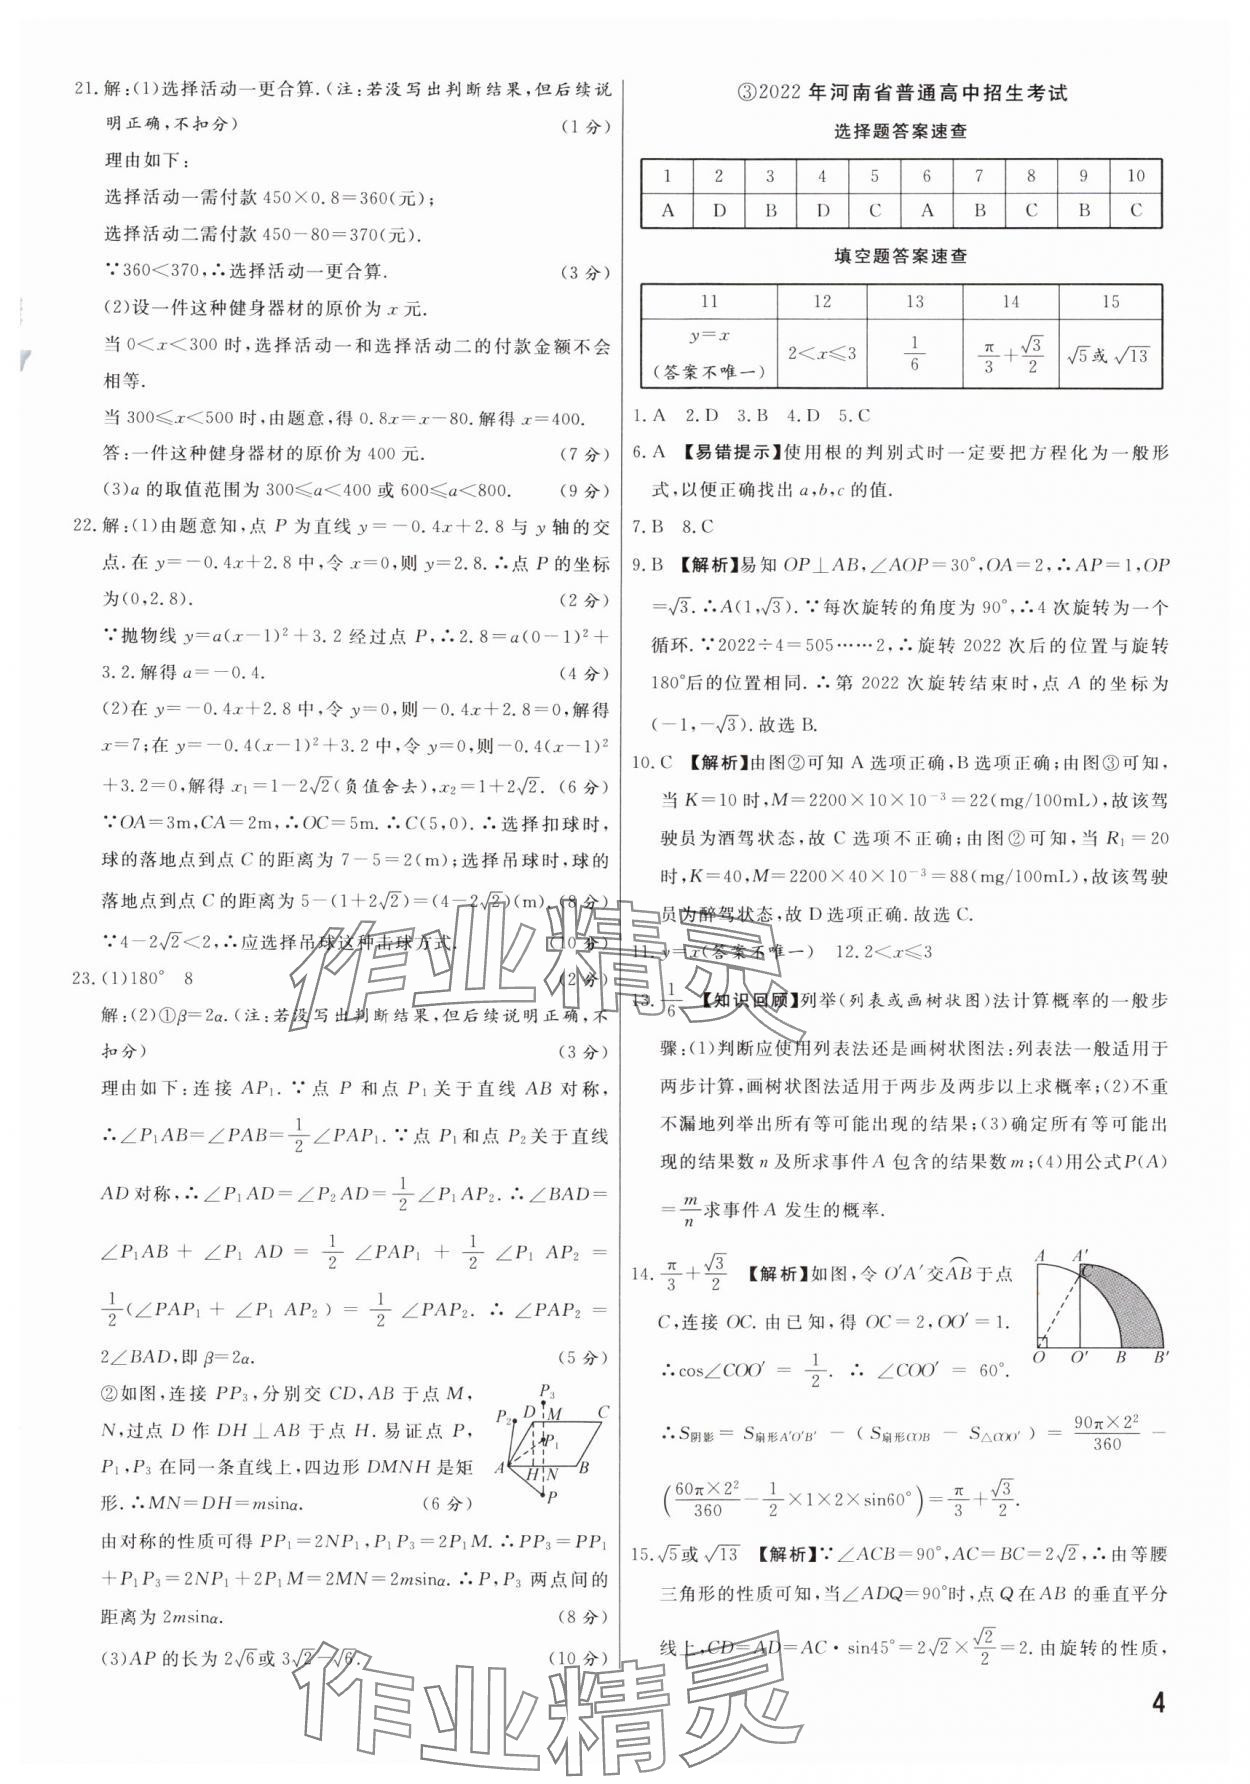 21.解:(1)选择活动一更合算.(注:若没写出判断结果,但后续说
明正确,不扣分) (1分)
理由如下:
选择活动一需付款450×0.8=360(元);
选择活动二需付款450-80=370(元).
∵360<370,∴选择活动一更合算. (3分)
(2)设一件这种健身器材的原价为x元.
当0<x<300时,选择活动一和选择活动二的付款金额不会
相等.
当300≤x<500时,由题意,得0.8x=x-80.解得x=400.
答:一件这种健身器材的原价为400元. (7分)
(3)a的取值范围为300≤a<400或600≤a<800. (9分)
22.解:(1)由题意知,点P为直线y=-0.4x+2.8与y轴的交
点.在y=-0.4x+2.8中,令x=0,则y=2.8.∴点P的坐标
为(0,2.8). (2分)
∵抛物线y=a(x-1)²+3.2经过点P,∴2.8=a(0-1)²+
3.2.解得a=-0.4. (4分)
(2)在y=-0.4x+2.8中,令y=0,则-0.4x+2.8=0,解得
x=7;在y=-0.4(x-1)²+3.2中,令y=0,则-0.4(x-1)²
+3.2=0,解得x₁=1-2√2(负值舍去),x₂=1+2√2. (6分)
∵OA=3m,CA=2m,∴OC=5m.∴C(5,0).∴选择扣球时,
球的落地点到点C的距离为7-5=2(m);选择吊球时,球的
落地点到点C的距离为5-(1+2√2)=(4-2√2)(m). (8分)
∵4-2√2<2,∴应选择吊球这种击球方式. (10分)
23.(1)180° 8 (2分)
解:(2)①β=2α.(注:若没写出判断结果,但后续说明正确,不
扣分) (3分)
理由如下:连接AP₁.∵点P和点P₁关于直线AB对称,
∴∠P₁AB=∠PAB=1/2∠PAP₁.∵点P₁和点P₂关于直线
AD对称,∴∠P₁AD=∠P₂AD=1/2∠P₁AP₂.∴∠BAD=
∠P₁AB+∠P₁AD=1/2∠PAP₁+1/2∠P₁AP₂=
1/2(∠PAP₁+∠P₁AP₂)=1/2∠PAP₂.∴∠PAP₂=
2∠BAD,即β=2α. (5分)
②如图,连接PP₃,分别交CD,AB于点M,
N,过点D作DH⊥AB于点H.易证点P,
P₁,P₃在同一条直线上,四边形DMNH是矩
形.∴MN=DH=msinα. (6分)
P₃
P₂ D M C
P₁
A H N B
P
由对称的性质可得PP₁=2NP₁,P₁P₃=2P₁M.∴PP₃=PP₁
+P₁P₃=2NP₁+2P₁M=2MN=2msinα.∴P,P₃两点间的
距离为2msinα. (8分)
(3)AP的长为2√6或3√2-√6. (10分)
③2022年河南省普通高中招生考试
选择题答案速查
1 2 3 4 5 6 7 8 9 10
A D B D C A B C B C
填空题答案速查
11 12 13 14 15
y=x
(答案不唯一) 2<x≤3 1/6 π/3+√3/2 √5或√13
1.A 2.D 3.B 4.D 5.C
6.A 【易错提示】使用根的判别式时一定要把方程化为一般形
式,以便正确找出a,b,c的值.
7.B 8.C
9.B 【解析】易知OP⊥AB,∠AOP=30°,OA=2,∴AP=1,OP
=√3.∴A(1,√3).∵每次旋转的角度为90°,∴4次旋转为一个
循环.∵2022÷4=505……2,∴旋转2022次后的位置与旋转
180°后的位置相同.∴第2022次旋转结束时,点A的坐标为
(-1,-√3).故选B.
10.C 【解析】由图②可知A选项正确,B选项正确;由图③可知,
当K=10时,M=2200×10×10⁻³=22(mg/100mL),故该驾
驶员为酒驾状态,故C选项不正确;由图②可知,当R₁=20
时,K=40,M=2200×40×10⁻³=88(mg/100mL),故该驾驶
员为醉驾状态,故D选项正确.故选C.
11.y=x(答案不唯一) 12.2<x≤3
13.1/6 【知识回顾】列举(列表或画树状图)法计算概率的一般步
骤:(1)判断应使用列表法还是画树状图法:列表法一般适用于
两步计算,画树状图法适用于两步及两步以上求概率;(2)不重
不漏地列举出所有等可能出现的结果;(3)确定所有等可能出
现的结果数n及所求事件A包含的结果数m;(4)用公式P(A)
=m/n求事件A发生的概率.
14.π/3+√3/2 【解析】如图,令O′A′交⌒AB于点
C,连接OC.由已知,得OC=2,OO′=1.
∴cos∠COO′=1/2.∴∠COO′=60°.
A A′
C
O O′ B B′
∴S阴影=S扇形A′O′B′-(S扇形COB-S△COO′)=90π×2²/360-
(60π×2²/360-1/2×1×2×sin60°)=π/3+√3/2.
15.√5或√13 【解析】∵∠ACB=90°,AC=BC=2√2,∴由等腰
三角形的性质可知,当∠ADQ=90°时,点Q在AB的垂直平分
线上,CD=AD=AC·sin45°=2√2×√2/2=2.由旋转的性质,
4
作业精灵
作业精灵